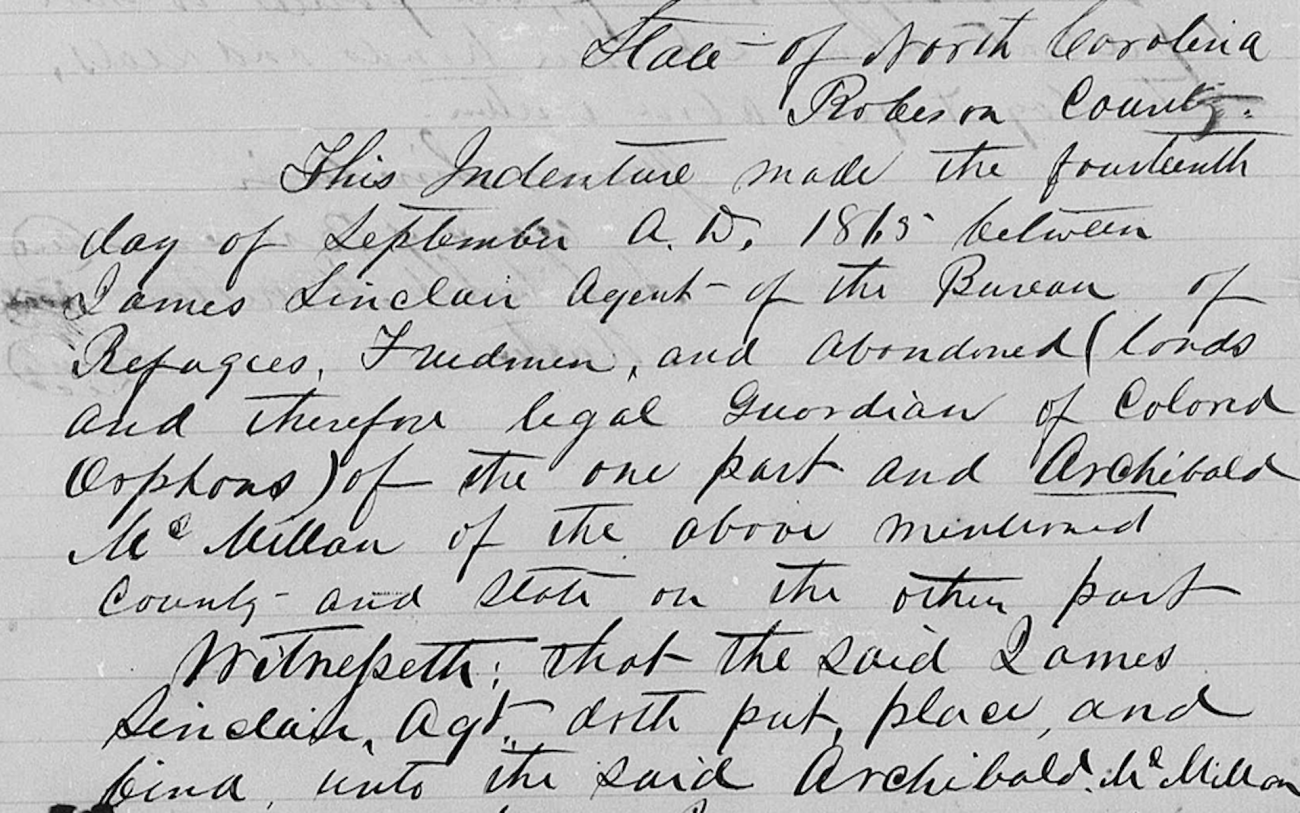 State of North Carolina
Robeson County.
This Indenture made the fourteenth
day of September A.D. 1865 between
James Sinclair Agent of the Bureau of
Refugees, Freedmen, and abandoned (lands
and therefore legal Guardian of Colored
Orphans) of the one part and Archibald
Mc Millan of the above mentioned
County and State on the other part
Witnesseth; that the said James
Sinclair, Agt. doth put, place, and
bind, unto the said Archibald. Mc Millan